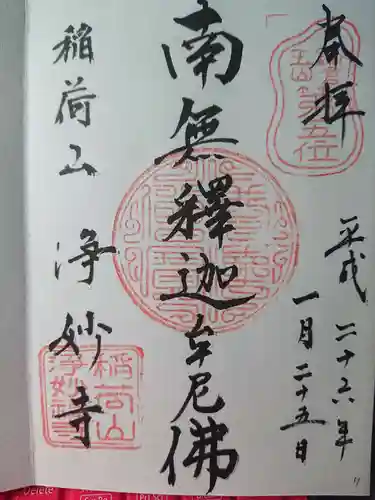 奉拝
平成二十六年
一月二十五日
南無釋迦牟尼佛
稲荷山
浄妙寺
稲荷山
浄妙寺
Delete